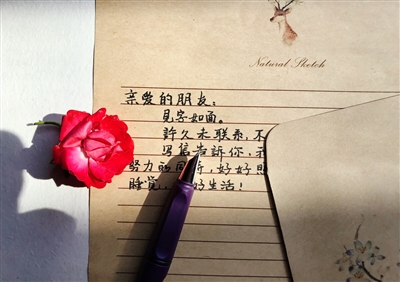 Natural Sketch
亲爱的朋友：
見字如面。
許久未联系，不
写信告訴你，
努力的同時，好好
睡觉，好生活！